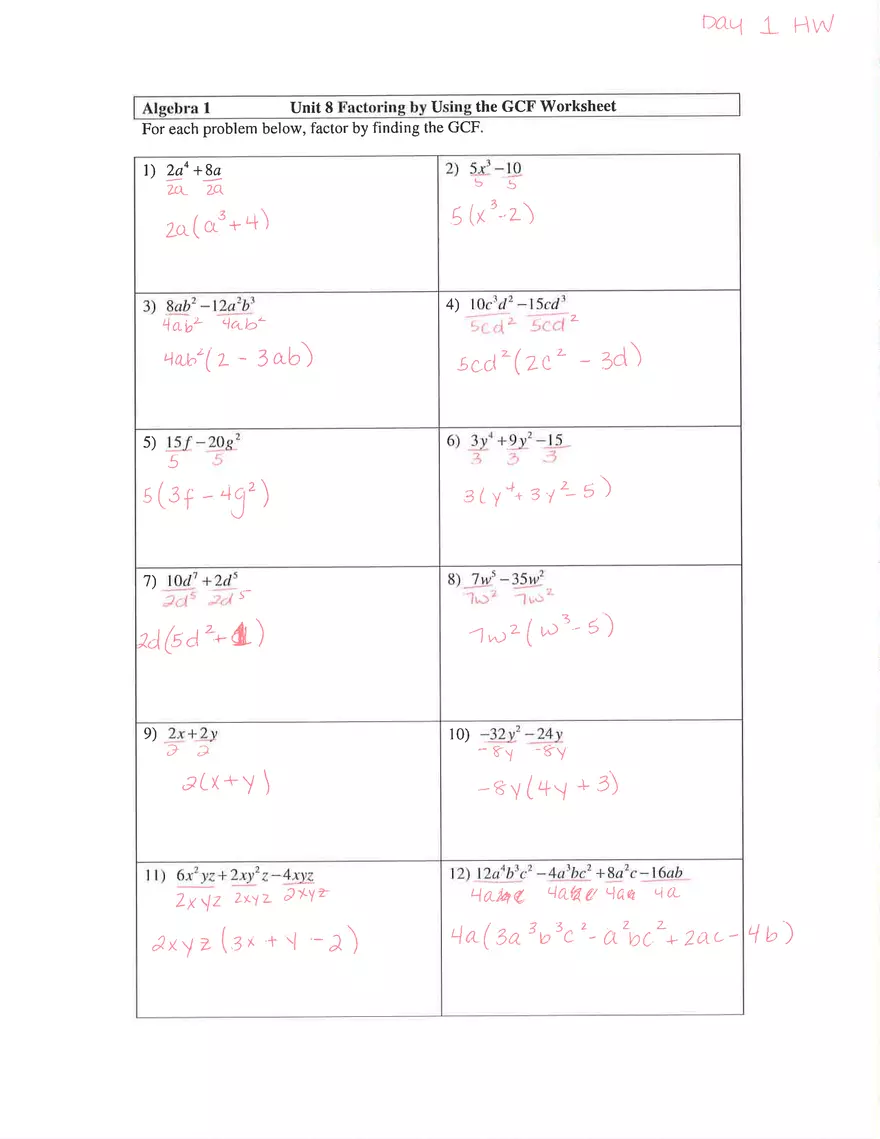 Day 1 HW
Algebra 1 Unit 8 Factoring by Using the GCF Worksheet
For each problem below, factor by finding the GCF.
1) 2a⁴ + 8a
2a 2a
2a(a³ + 4)
2) 5x³ – 10
5 5
5(x³ - 2)
3) 8ab² – 12a²b³
4ab² 4ab²
4ab²(2 - 3ab)
4) 10c³d² – 15cd³
5cd² 5cd²
5cd²(2c² - 3d)
5) 15f – 20g²
5 5
5(3f - 4g²)
6) 3y⁴ + 9y² – 15
3 3 3
3(y⁴ + 3y² - 5)
7) 10d⁷ + 2d⁵
2d⁵ 2d⁵
2d(5d² + 1)
8) 7w⁵ – 35w²
7w² 7w²
7w²(w³ - 5)
9) 2x + 2y
2 2
2(x + y)
10) –32y² – 24y
-8y -8y
-8y(4y + 3)
11) 6x²yz + 2xy²z – 4xyz
2xyz 2xyz 2xyz
2xyz(3x + y - 2)
12) 12a⁴b³c² – 4a³bc² + 8a²c – 16ab
4a 4a 4a 4a
4a(3a³b³c² - a²bc² + 2ac - 4b)